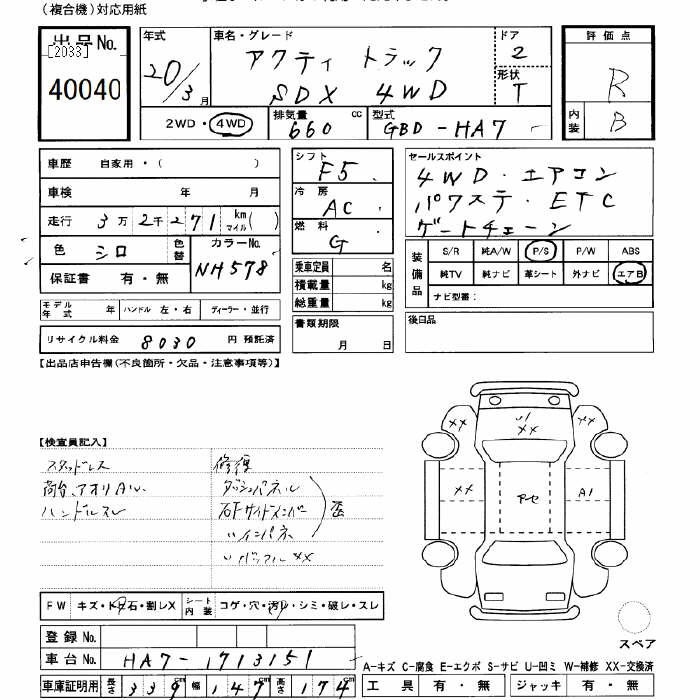 (複合機)対応用紙
出品No.
[2033]
40040
年式
20/3月
車名・グレード
アクティ トラック
SDX 4WD
ドア
2
形状
T
2WD・4WD
排気量
660 cc
型式
GBD-HA7
評価点
R
内装
B
車歴 自家用・( )
車検 年 月
走行 3万2千271 km マイル( )
色 シロ 色替
カラーNo.
NH578
保証書 有・無
モデル年式 年 ハンドル 左・右 ディーラー・並行
リサイクル料金 8030 円 預託済
シフト
F5
冷房
AC
燃料
G
乗車定員 名
積載量 kg
総重量 kg
書類期限
月 日
セールスポイント
4WD・エアコン
パワステ・ETC
ゲートチェーン
装備品
S/R 純A/W P/S P/W ABS
純TV 純ナビ 革シート 外ナビ エアB
ナビ型番:
後日品
【出品店申告欄(不良箇所・欠品・注意事項等)】
【検査員記入】
スタッドレス
荷台、アオリAU.
ハンドルスレ
修復
ダッシュパネル
右Fサイドメンバー
〃インパネ
〃バッフルXX
歪
XX
XX
XX
XX
アーセ
A1
FW キズ・トビ石・割レX シート内装 コゲ・穴・汚レ・シミ・破レ・スレ
登録No.
車台No. HA7-1713151
車庫証明用 長さ 339cm 幅 147cm 高さ 174cm
スペア
A-キズ C-腐食 E-エクボ S-サビ U-凹ミ W-補修 XX-交換済
工具 有・無 ジャッキ 有・無